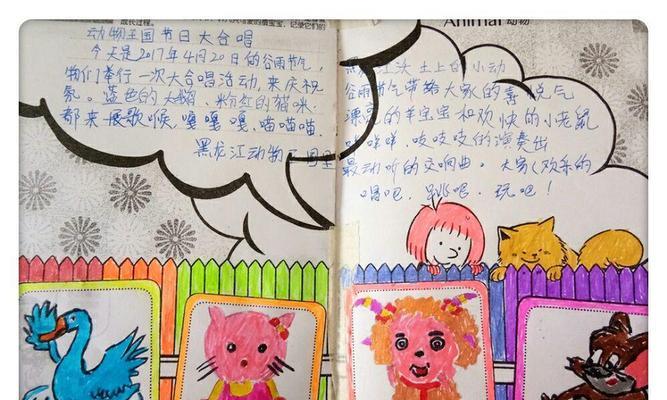 成长过程。
记录它们的
Animal 动物
动物王国节日大合唱
今天是2017年4月20日的谷雨节气,
物们举行一次大合唱活动,来庆祝
氛。蓝色的大鹅、粉红的猫咪.
都来展歌喉,嘎嘎嘎,喵喵喵.
黑龙江动物王国里
黑龙江头土上的小动
谷雨节气带给大家的喜悦气
漂亮的羊宝宝和欢快的小老鼠
咩咩.吱吱吱的演奏出
最动听的交响曲。大家欢乐的
唱吧.跳吧.玩吧!